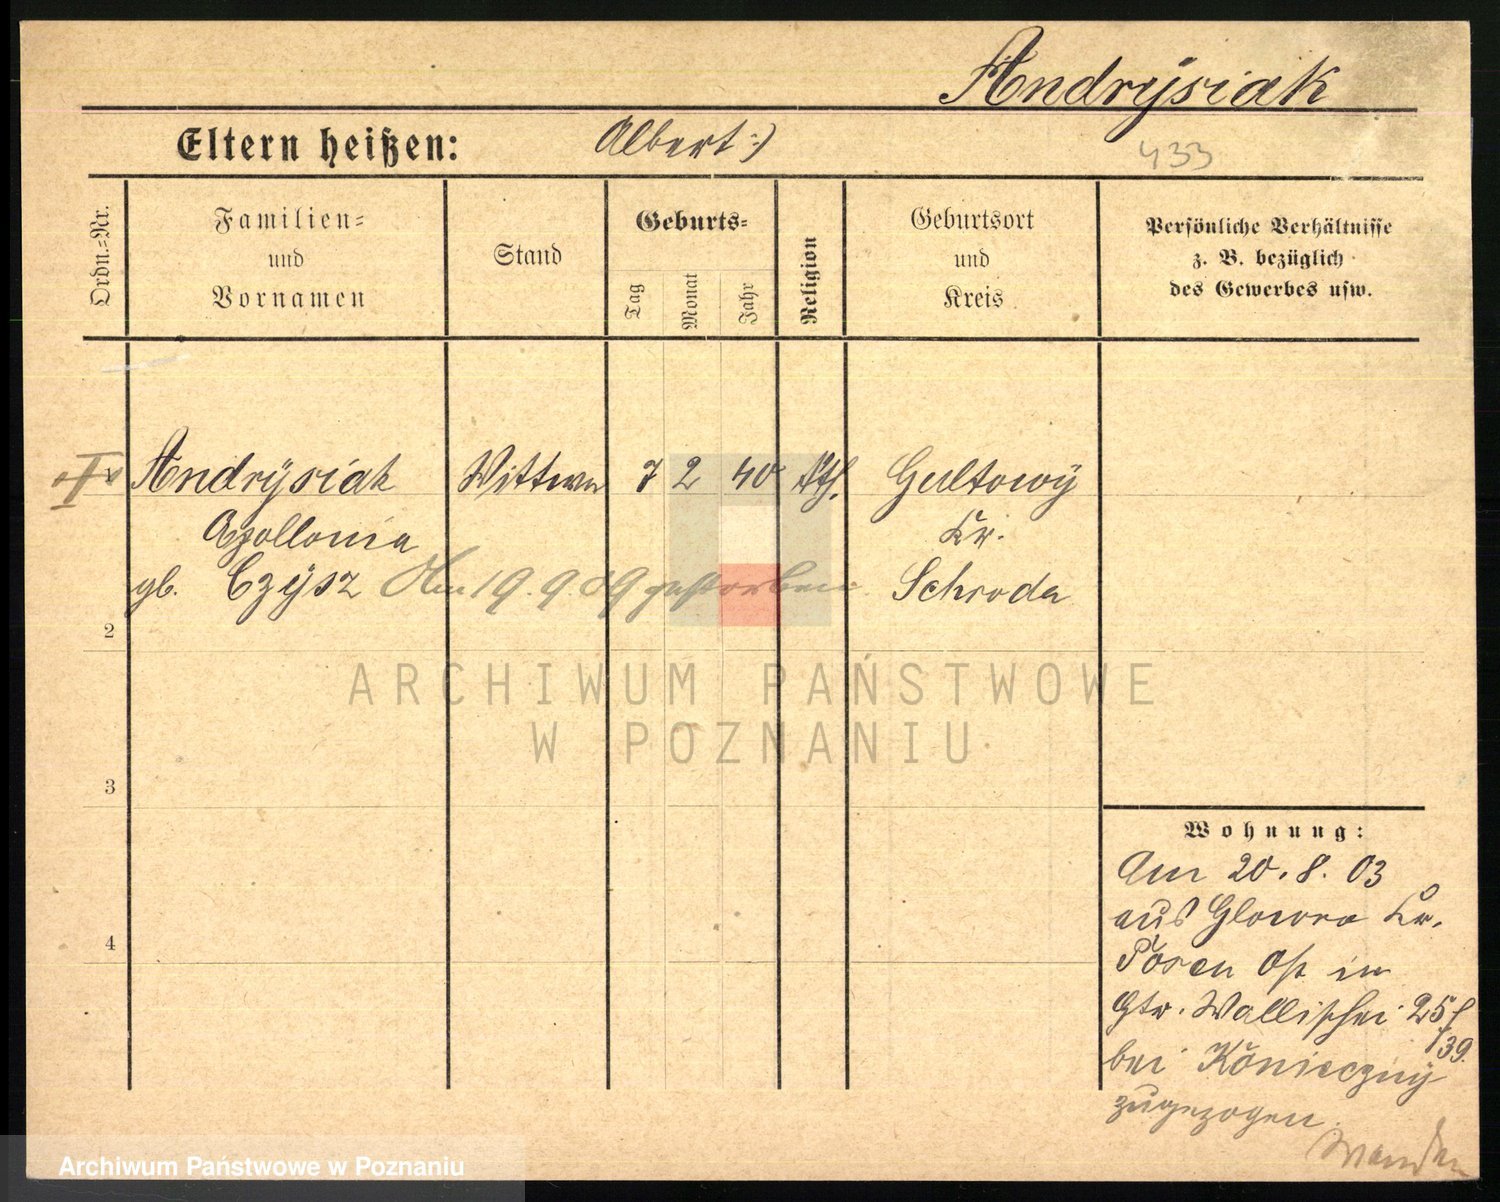 Andrÿsiak
Eltern heißen:
Albert :)
433
Ordn.=Nr.
Familien=
und
Vornamen
Stand
Geburts=
Tag
Monat
Jahr
Religion
Geburtsort
und
Kreis
Persönliche Verhältnisse
z. B. bezüglich
des Gewerbes usw.
I Andrÿsiak Wittwe 7 2 40 kth. Gultowÿ
Apollonia Kr.
gb. Czÿsz Am 19.9.09 gestorben. Schroda
2
3
4
Wohnung:
Am 20.8.03
aus Glowno Kr.
Posen Ost in
Gtr. Wallischei 25/
/39.
bei Konieczny
zugezogen.
ARCHIWUM PAŃSTWOWE
W POZNANIU
Archiwum Państwowe w Poznaniu